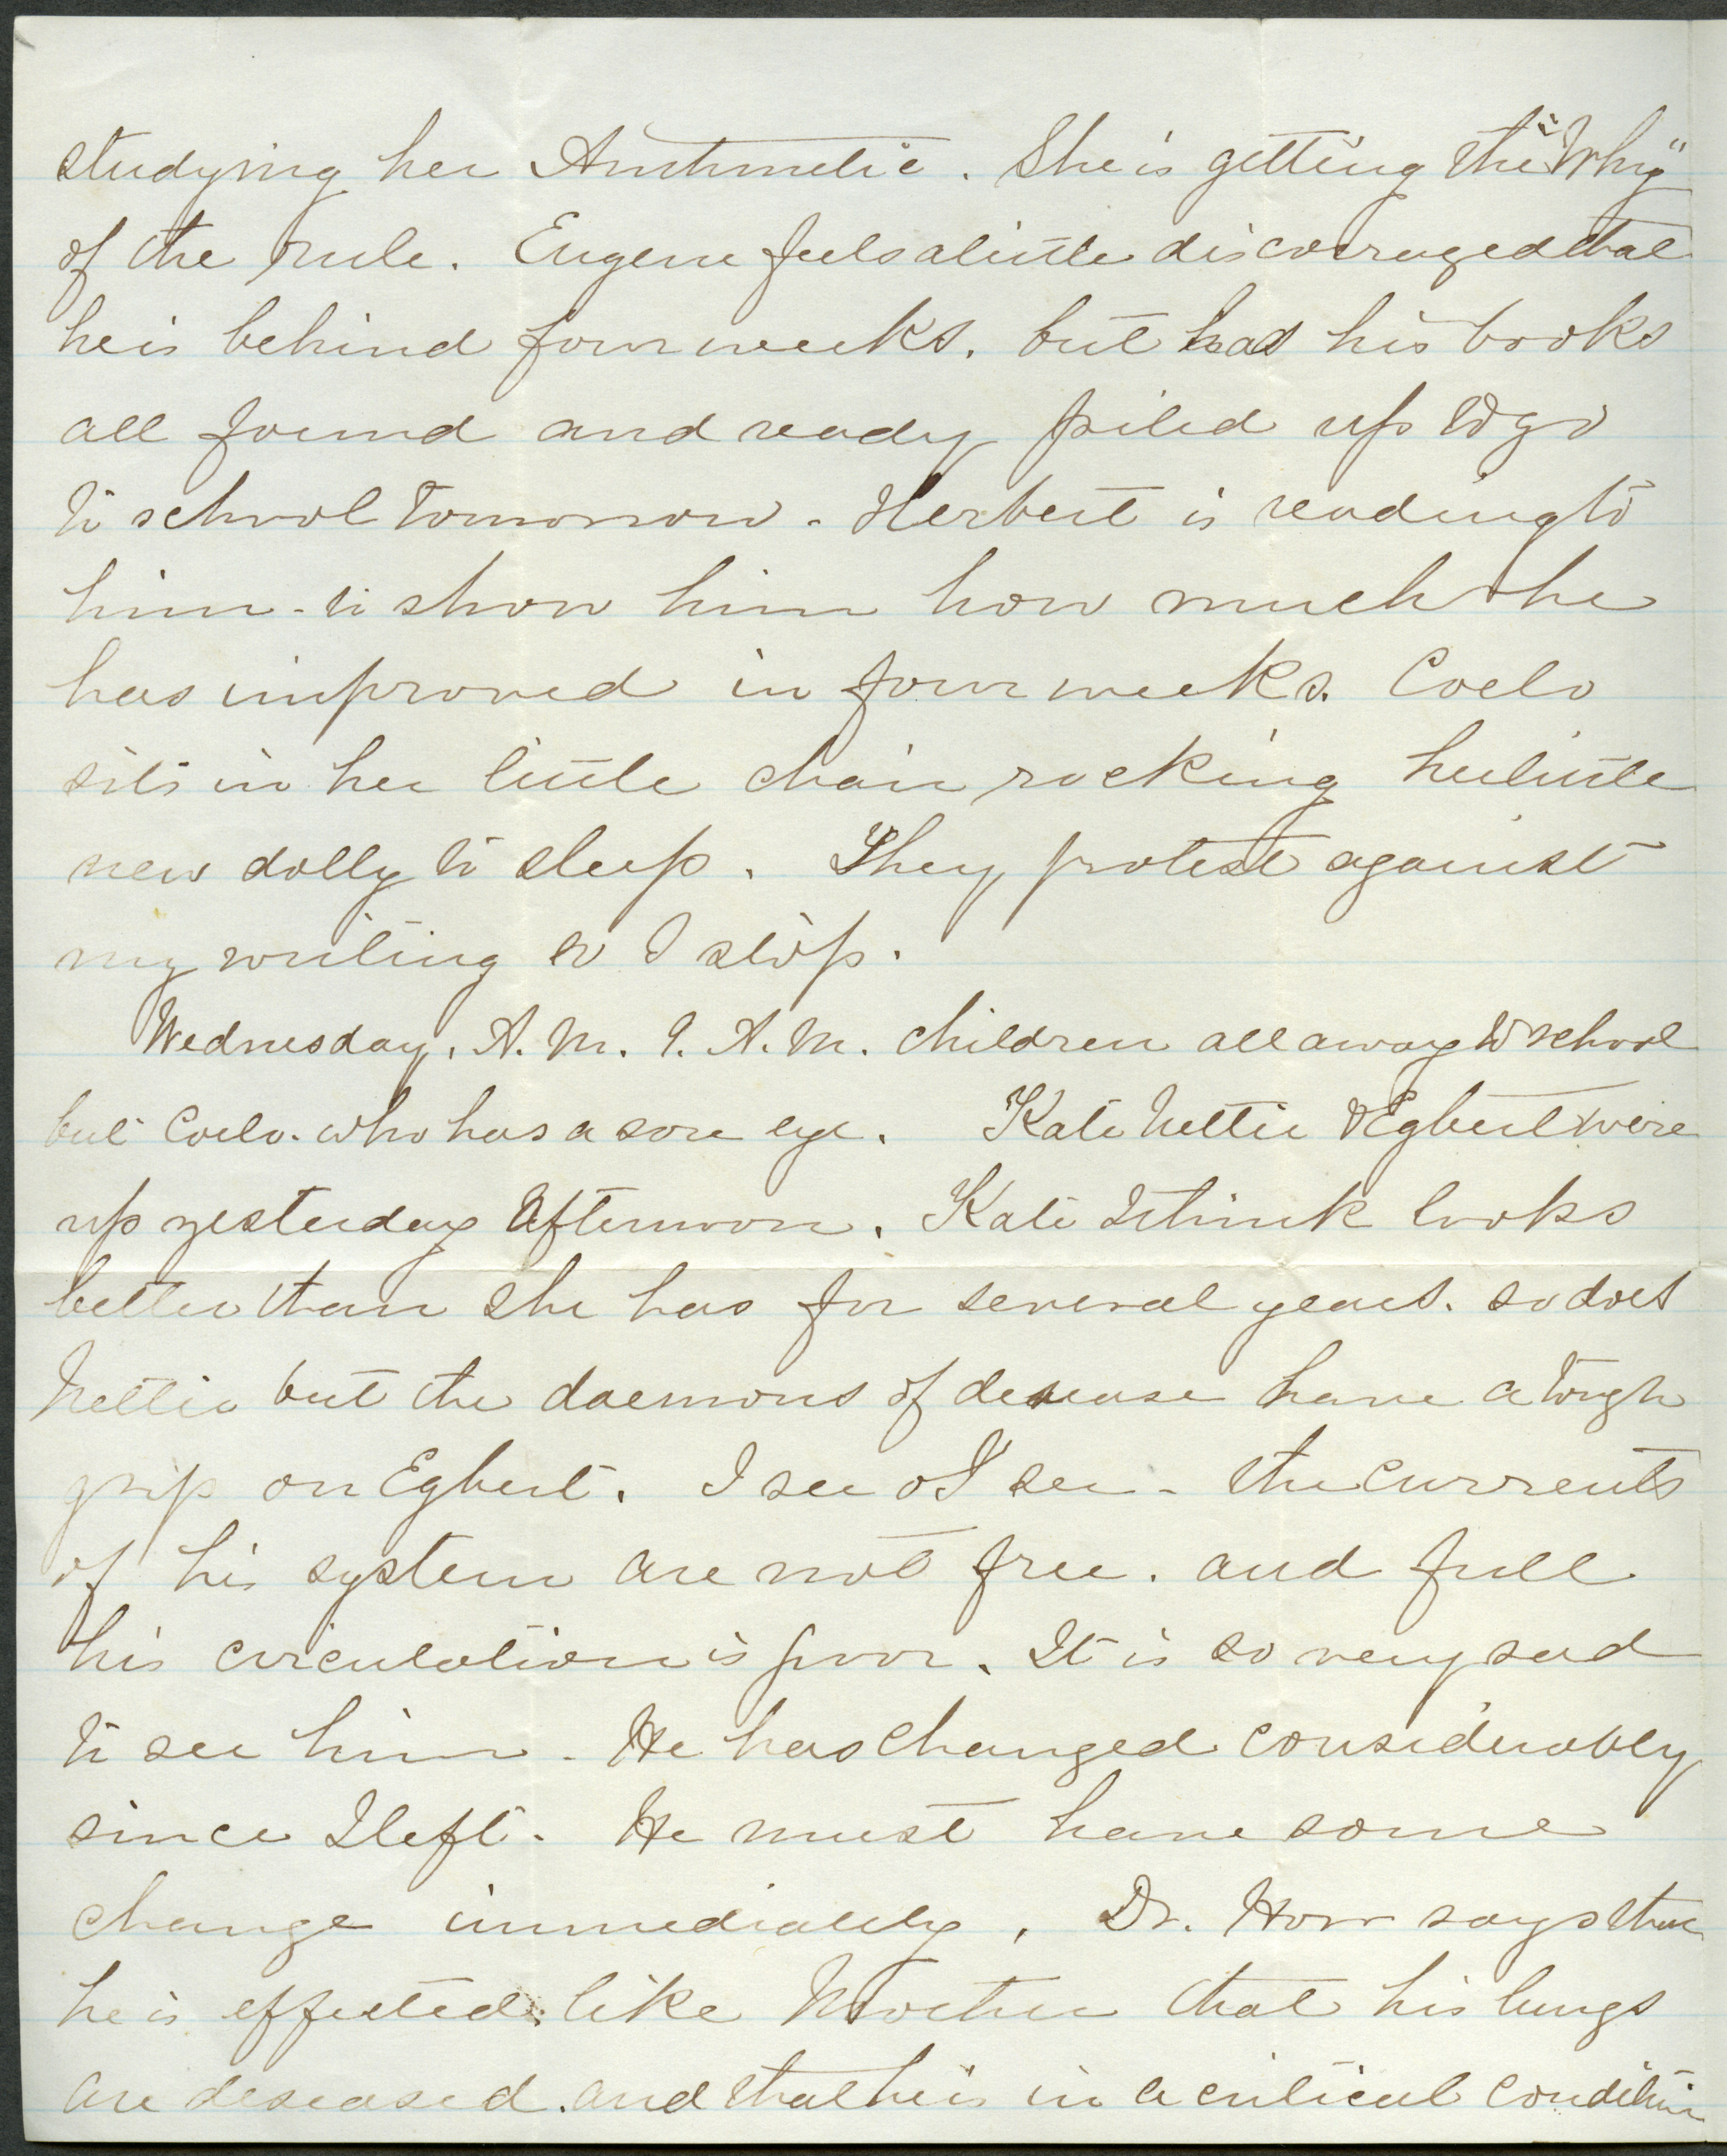 studying her Arithmetic. She is getting the "Why"
of the rule. Eugene feels a little discouraged that
he is behind four weeks. but has his books
all found and ready piled up to go
to school tomorrow. Herbert is reading to
him - to show him how much he
has improved in four weeks. Coelo
sits in her little chair rocking her little
new dolly to sleep. They protest against
my writing so I stop.
Wednesday. A.M. 9. A.M. Children all away to school
but Coelo. who has a sore eye. Kate Nettie & Egbert were
up yesterday Afternoon. Kate I think looks
better than she has for several years. so does
Nettie but the daemons of desease have a tough
grip on Egbert. I see I see - the currents
of his system are not free. and full
his circulation is poor. It is so very sad
to see him. He has changed considerably
since I left. He must have some
change immediately. Dr. Horr says that
he is effected like Mother that his lungs
are deseased. and that he is in a critical condition